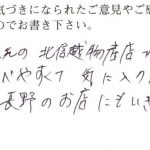 気づきになられたご意見やご
のでお書き下さい。
元の 北信越物産店
べやすくて 気に入
長野のお店にもいき